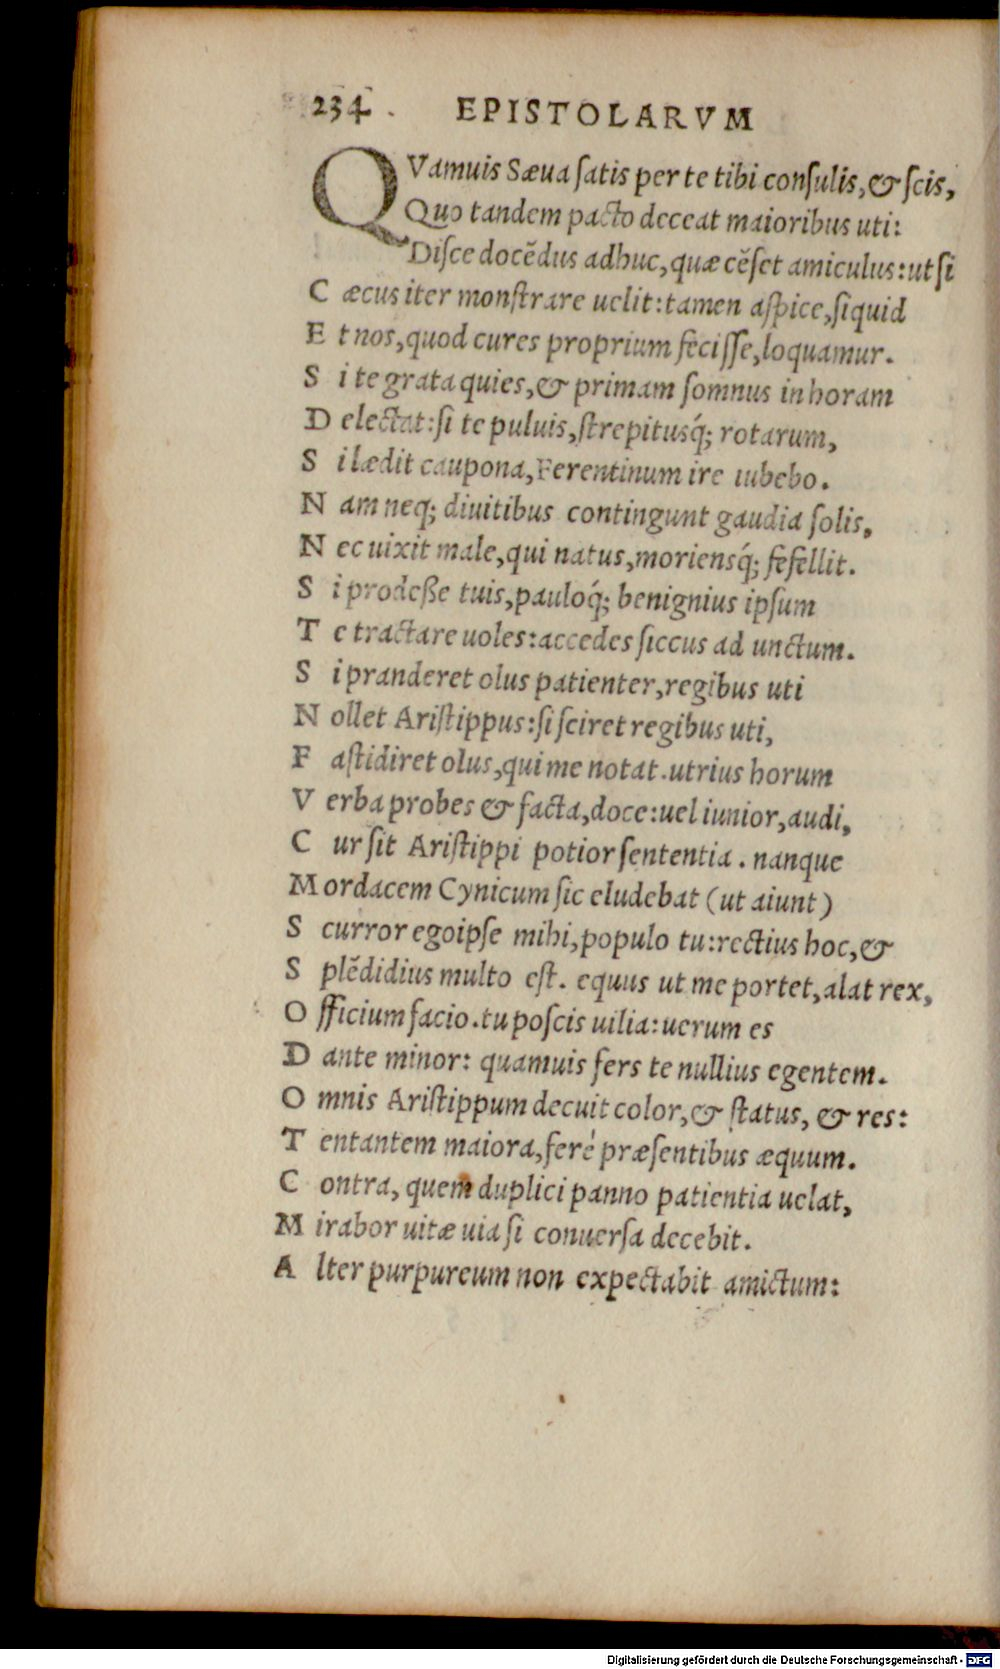 234 EPISTOLARVM
QVamuis Sæua ſatis per te tibi conſulis, & ſcis,
Quo tandem pacto deceat maioribus uti:
Diſce docẽdus adhuc, quæ cẽſet amiculus: ut ſi
Cæcus iter monſtrare uelit: tamen aſpice, ſiquid
Et nos, quod cures proprium feciſſe, loquamur.
Si te grata quies, & primam ſomnus in horam
Delectat: ſi te puluis, ſtrepitusq́; rotarum,
Si lædit caupona, Ferentinum ire iubebo.
Nam neq; diuitibus contingunt gaudia ſolis,
Nec uixit male, qui natus, moriensq́; fefellit.
Si prodeße tuis, pauloq́; benignius ipſum
Te tractare uoles: accedes ſiccus ad unctum.
Si pranderet olus patienter, regibus uti
Nollet Ariſtippus: ſi ſciret regibus uti,
Faſtidiret olus, qui me notat. utrius horum
Verba probes & facta, doce: uel iunior, audi,
Cur ſit Ariſtippi potior ſententia. nanque
Mordacem Cynicum ſic eludebat (ut aiunt)
Scurror ego ipſe mihi, populo tu: rectius hoc, &
Splẽdidius multo eſt. equus ut me portet, alat rex,
Officium facio. tu poſcis uilia: uerum es
Dante minor: quamuis fers te nullius egentem.
Omnis Ariſtippum decuit color, & ſtatus, & res:
Tentantem maiora, feré præſentibus æquum.
Contra, quem duplici panno patientia uelat,
Mirabor uitæ uia ſi conuerſa decebit.
Alter purpureum non expectabit amictum:
Digitalisierung gefördert durch die Deutsche Forschungsgemeinschaft - DFG